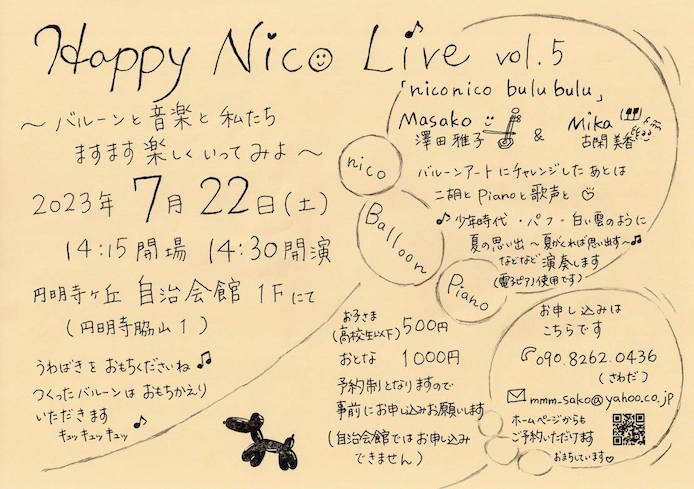 Happy Nico Live vol.5
「niconico bulubulu」
〜 バルーンと 音楽と 私たち
ますます 楽しく いってみよ 〜
2023年 7月 22日(土)
14:15 開場 14:30 開演
円明寺ヶ丘 自治会館 1Fにて
(円明寺脇山1)
うわばきを おもちくださいね♫
つくったバルーンは おもちかえり
いただきます ♪
キュッキュッキュッ
Masako
澤田 雅子
&
Mika
古閑 美香
nico
Balloon
Piano
バルーンアートにチャレンジしたあとは
二胡とPianoと歌声と♡
♪少年時代・パフ・白い雲のように
夏の思い出〜夏がくれば思い出す〜♫
などなど 演奏します
(電子ピアノ使用です)
お子さま
(高校生以下) 500円
おとな 1000円
予約制となりますので
事前にお申し込みお願いします
(自治会館ではお申し込み
できません)
お申し込みは
こちらです
090.8262.0436
(さわだ)
mmm_sako@yahoo.co.jp
ホームページからも
ご予約いただけます
おまちしています♡